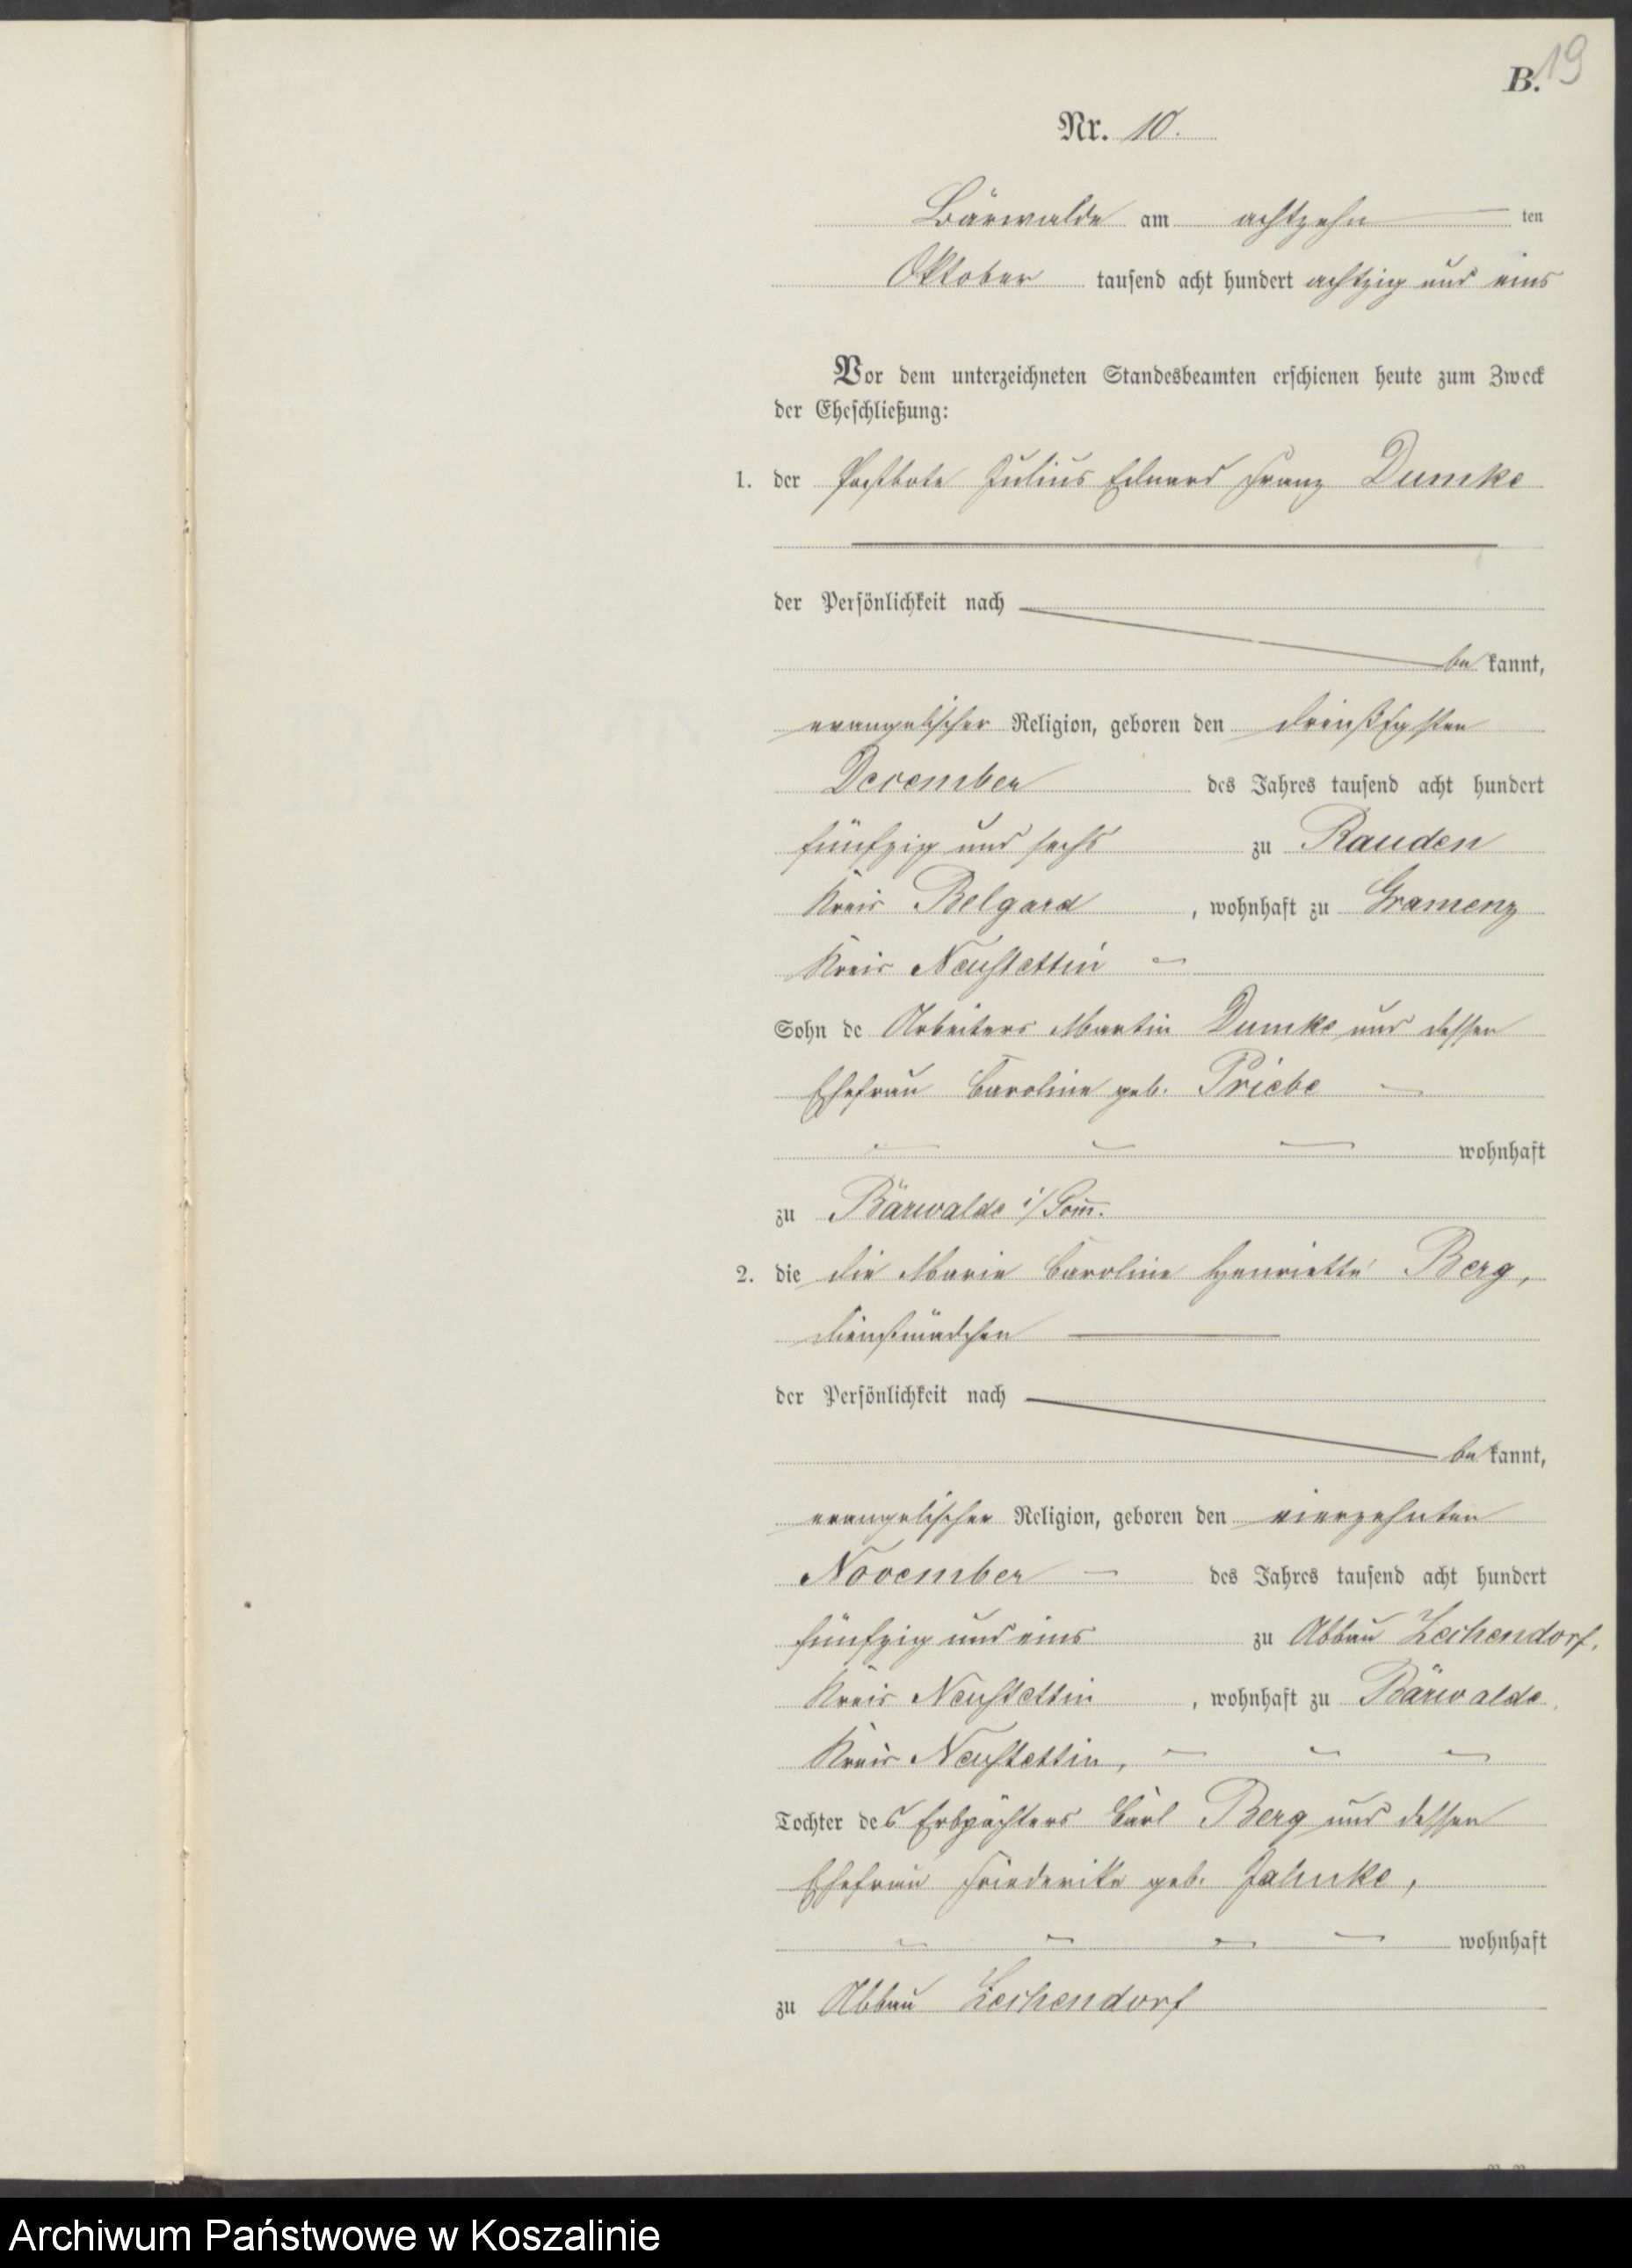 B. 19
Nr. 10.
Bärwalde am achtzehn ten
Oktober tausend acht hundert achtzig und eins
Vor dem unterzeichneten Standesbeamten erschienen heute zum Zweck
der Eheschließung:
1. der Postbote Julius Eduard Franz Dumke
der Persönlichkeit nach
be kannt,
evangelischer Religion, geboren den dreißigsten
December des Jahres tausend acht hundert
fünfzig und sechs zu Rauden
Kreis Belgard , wohnhaft zu Gramenz
Kreis Neustettin
Sohn de Arbeiters Martin Dumke und dessen
Ehefrau Caroline geb. Priebe
wohnhaft
zu Bärwalde i/Pom̅.
2. die die Marie Caroline Henriette Berg,
Dienstmädchen
der Persönlichkeit nach
be kannt,
evangelischer Religion, geboren den vierzehnten
November des Jahres tausend acht hundert
fünfzig und eins zu Abbau Zechendorf,
Kreis Neustettin , wohnhaft zu Bärwalde,
Kreis Neustettin,
Tochter des Erbpächters Carl Berg und dessen
Ehefrau Friederike geb. Jahnke,
wohnhaft
zu Abbau Zechendorf
Archiwum Państwowe w Koszalinie